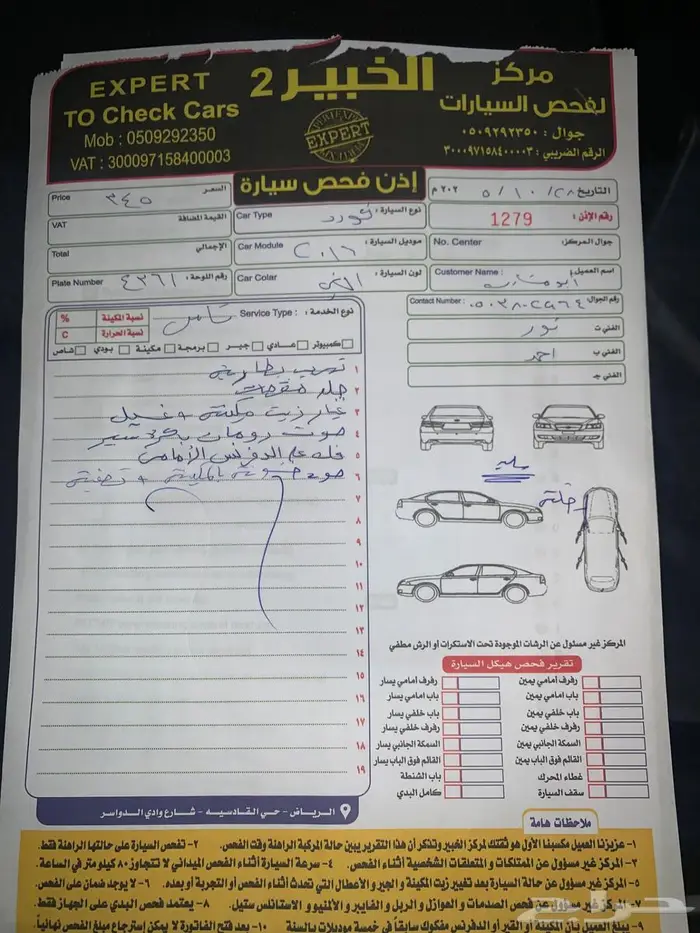 EXPERT
TO Check Cars
Mob : 0509292350
VAT : 300097158400003
الخبير 2
EXPERT
مركز
لفحص السيارات
جوال : ٠٥٠٩٢٩٢٣٥٠
الرقم الضريبي : ٣٠٠٠٩٧١٥٨٤٠٠٠٠٣
إذن فحص سيارة
التاريخ ٢٨ / ١٠ / ٥ ٢٠٢ م
رقم الإذن : 1279
جوال المركز: No. Center
اسم العميل : Customer Name :
رقم الجوال : Contact Number :
الفني ت نور
الفني ب احمد
الفني جـ
Price السعر ٣٤٥
VAT القيمة المضافة
Total الإجمالي
Plate Number رقم اللوحة: ٤٣٦١
Car Type نوع السيارة : فورد
Car Module موديل السيارة : ٢٠١٦
Car Colar لون السيارة :
نوع الخدمة : Service Type : شامل
نسبة المكينة %
نسبة الحرارة C
كمبيوتر عــادي جيــر برمجة مكينة بودي شاص
١ تهريب بطارية
٢ جلد مقصات
٣ غيار زيت مكينة + غسيل
٤ صوت رومان بكرة سير
٥
٦
٧
٨
٩
١٠
١١
١٢
١٣
١٤
١٥
١٦
١٧
١٨
١٩
المركز غير مسئول عن الرشات الموجودة تحت الاستكرات أو الرش مطفي
تقرير فحص هيكل السيارة
رفرف أمامي يمين
باب امامي يمين
باب خلفي يمين
رفرف خلفي يمين
السمكة الجانبي يمين
القائم فوق الباب يمين
غطاء المحرك
سقف السيارة
رفرف أمامي يسار
باب امامي يسار
باب خلفي يسار
رفرف خلفي يسار
السمكة الجانبي يسار
القائم فوق الباب يسار
باب الشنطة
كامل البدي
الرياض - حي القادسيه - شارع وادي الدواسر
ملاحظات هامة
١- عزيزنا العميل مكسبنا الأول هو ثقتك لمركز الخبير وتذكر أن هذا التقرير يبين حالة المركبة الراهنة وقت الفحص. ٢- تفحص السيارة على حالتها الراهنة فقط.
٣- المركز غير مسؤول عن الممتلكات و المتعلقات الشخصية أثناء الفحص. ٤- سرعة السيارة أثناء الفحص الميداني لا تتجاوز ٨٠ كيلو متر في الساعة.
٥- المركز غير مسؤول عن حالة السيارة بعد تغيير زيت المكينة و الجير و الأعطال التي تحدث أثناء الفحص أو التجربة أو بعده. ٦- لا يوجد ضمان على الفحص.
٧- المركز غير مسؤول عن فحص الصدمات و العوازل و الربل و الفايبر و الألمنيو و الاستانلس ستيل. ٨- يعتمد فحص البدي على الجهاز فقط.
٩- يبلغ العميل بأن المكينة أو القير أو الدفرنس مفكوك سابقاً في خمسة موديلات بالسنة ١٠- بعد فتح الفاتورة لا يمكن إسترجاع مبلغ الفحص نهائياً.